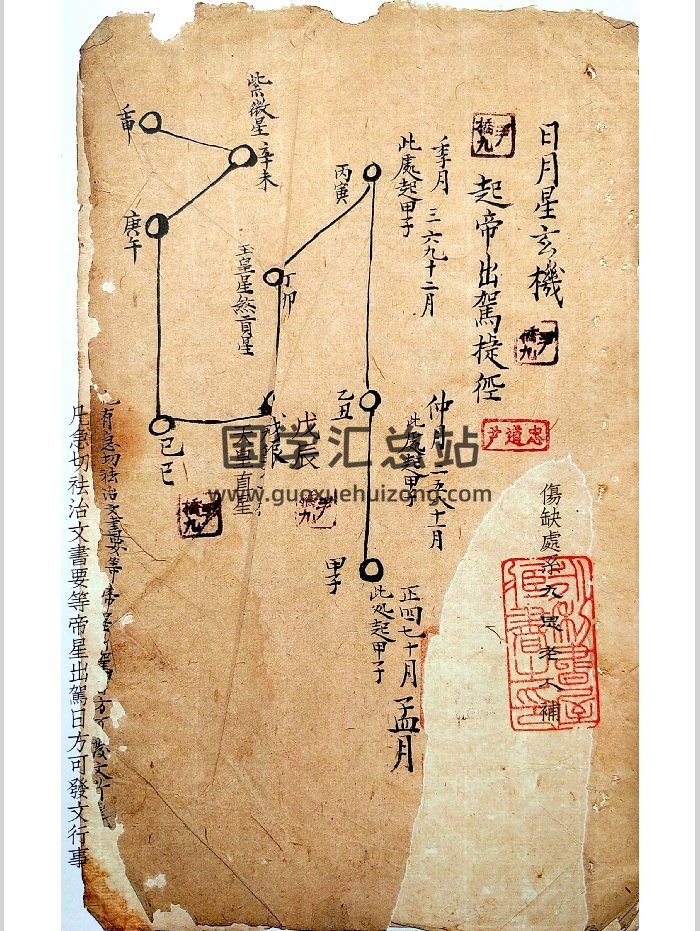 日月星玄機
起帝出駕捷徑
尹橋九
尹橋九
忠道尹
傷缺處系九思老人補
季月 三六九十二月
此處起甲子
丙寅
仲月 二五八十一月
此處起甲子
乙丑
正四七十月 孟月
此処起甲子
甲子
丁卯
玉皇星煞貢星
戊辰
戊辰
天皇直星
尹橋九
尹橋九
紫微星
辛未
壬申
庚午
己巳
有急切祛治文書要等帝
方可發文行事
凡急切祛治文書要等帝星出駕日方可發文行事
国学汇总站
www.guoxuehuizong.com